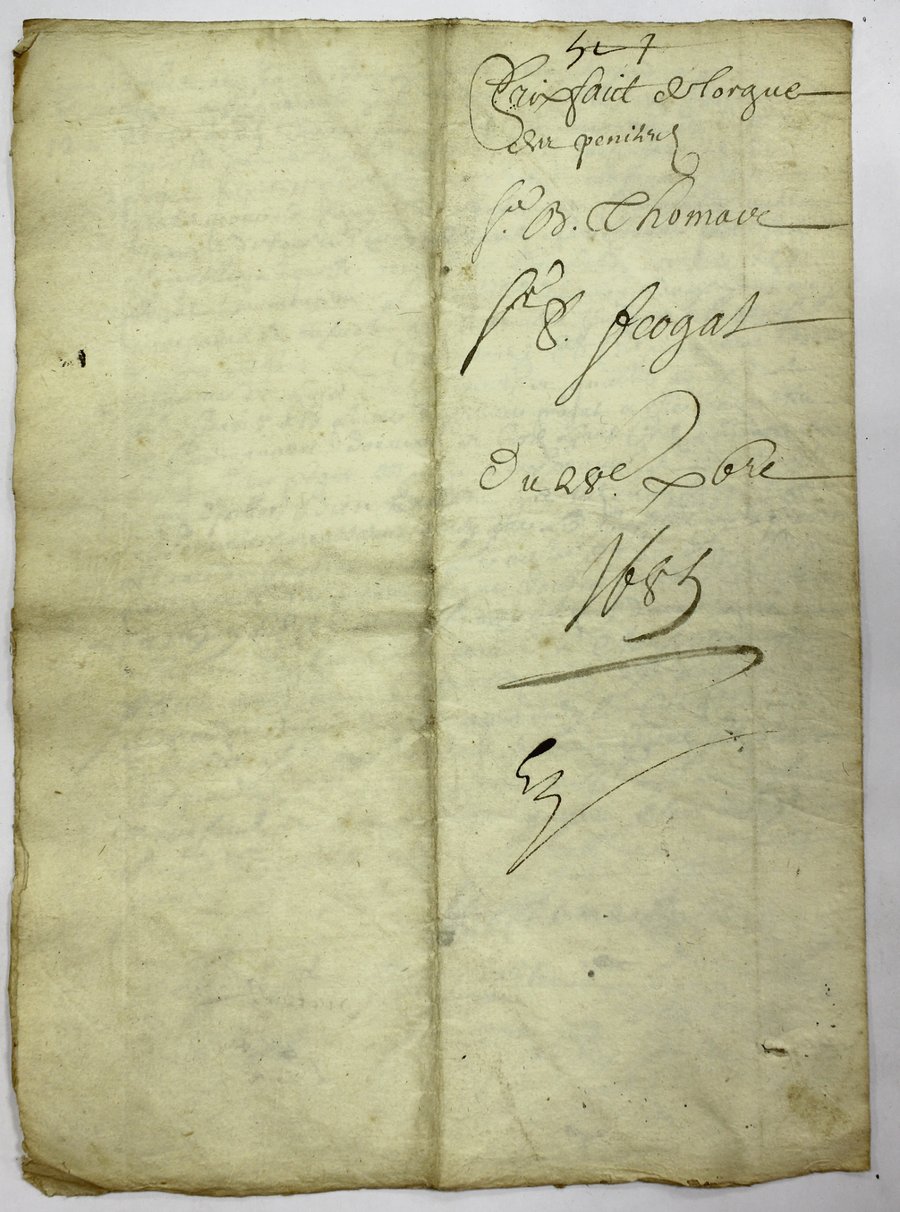 Prixfaict de lorgue
des penitens
Sr. B. Thomace
Sr. P. Frogat
Du 28e xbre
1685